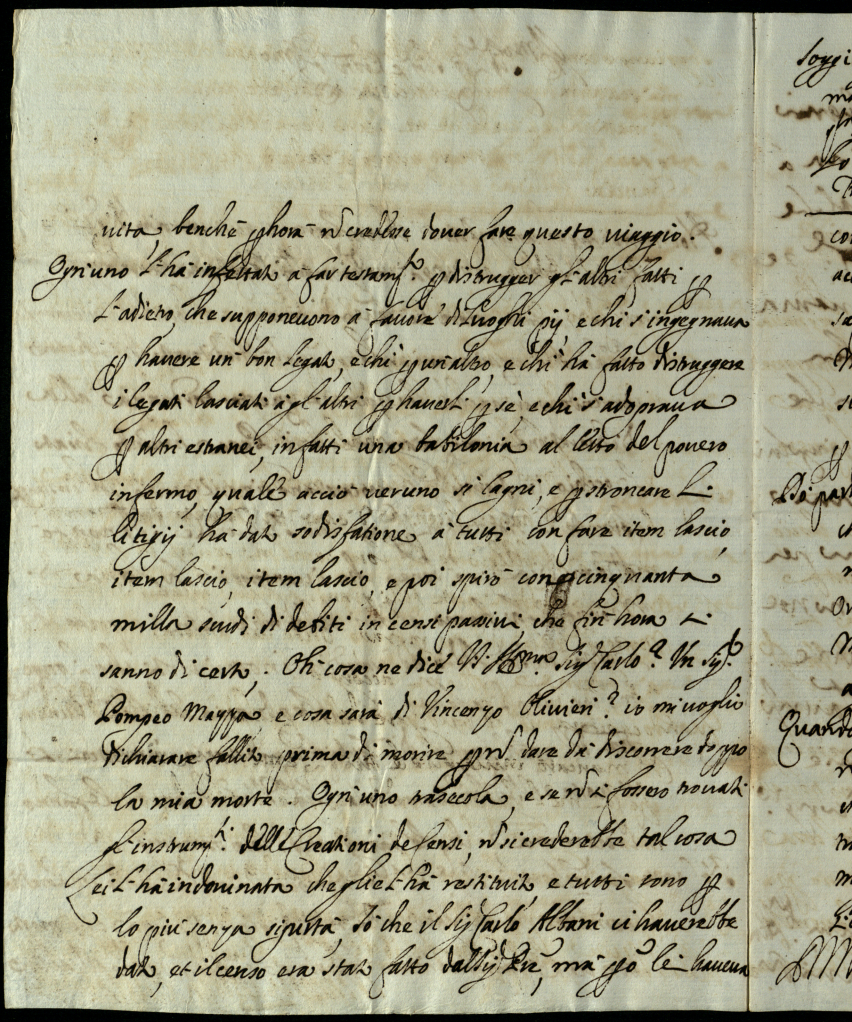 uita, benche p hora nõ credesse douer fare questo uiaggio.
Ogn'uno l'hà infestato à far testam.to p distrugger gl'altri fatti p
l'adietro, che supponeuono à fauore di luoghi pij, e chi s'ingegnaua
p hauere un bon legato, e chi p un'altro, e chi hà fatto distruggere
i legati lasciati àgl'altri p hauerli p sè, e chi s'adopraua
p altri estranei, in fatti una babilonia al letto del pouero
infermo, quale acciò ueruno si lagni, e p stroncare le
litigij hà dato sodisfatione à tutti con fare item lascio,
item lascio, item lascio, e poi spirò con cinquanta
milla scudi di debiti in censi passiui che fin'hora si
sanno di certo. Oh cosa ne dice V. Ill.ma Sig. Carlo? Un Sig.r
Pompeo Mappa e cosa sarà di Vincenzo Oliuieri? io mi uoglio
dichiarare fallito prima di morire p nõ dare da discorrere doppo
la mia morte. Ogn'uno trasecola, e se nõ si fossero trouati
gl'instrum.ti delle Creationi de Censi, nõ si crederebbe tal cosa
Lei l'hà indouinata che glie l'hà restituito, e tutti sono p
lo più senza sigurtà, Sò che il Sig. Carlo Albani ui hauerebbe
dato, et il censo era stato fatto dal Sig. Prē, mà pò lei haueua